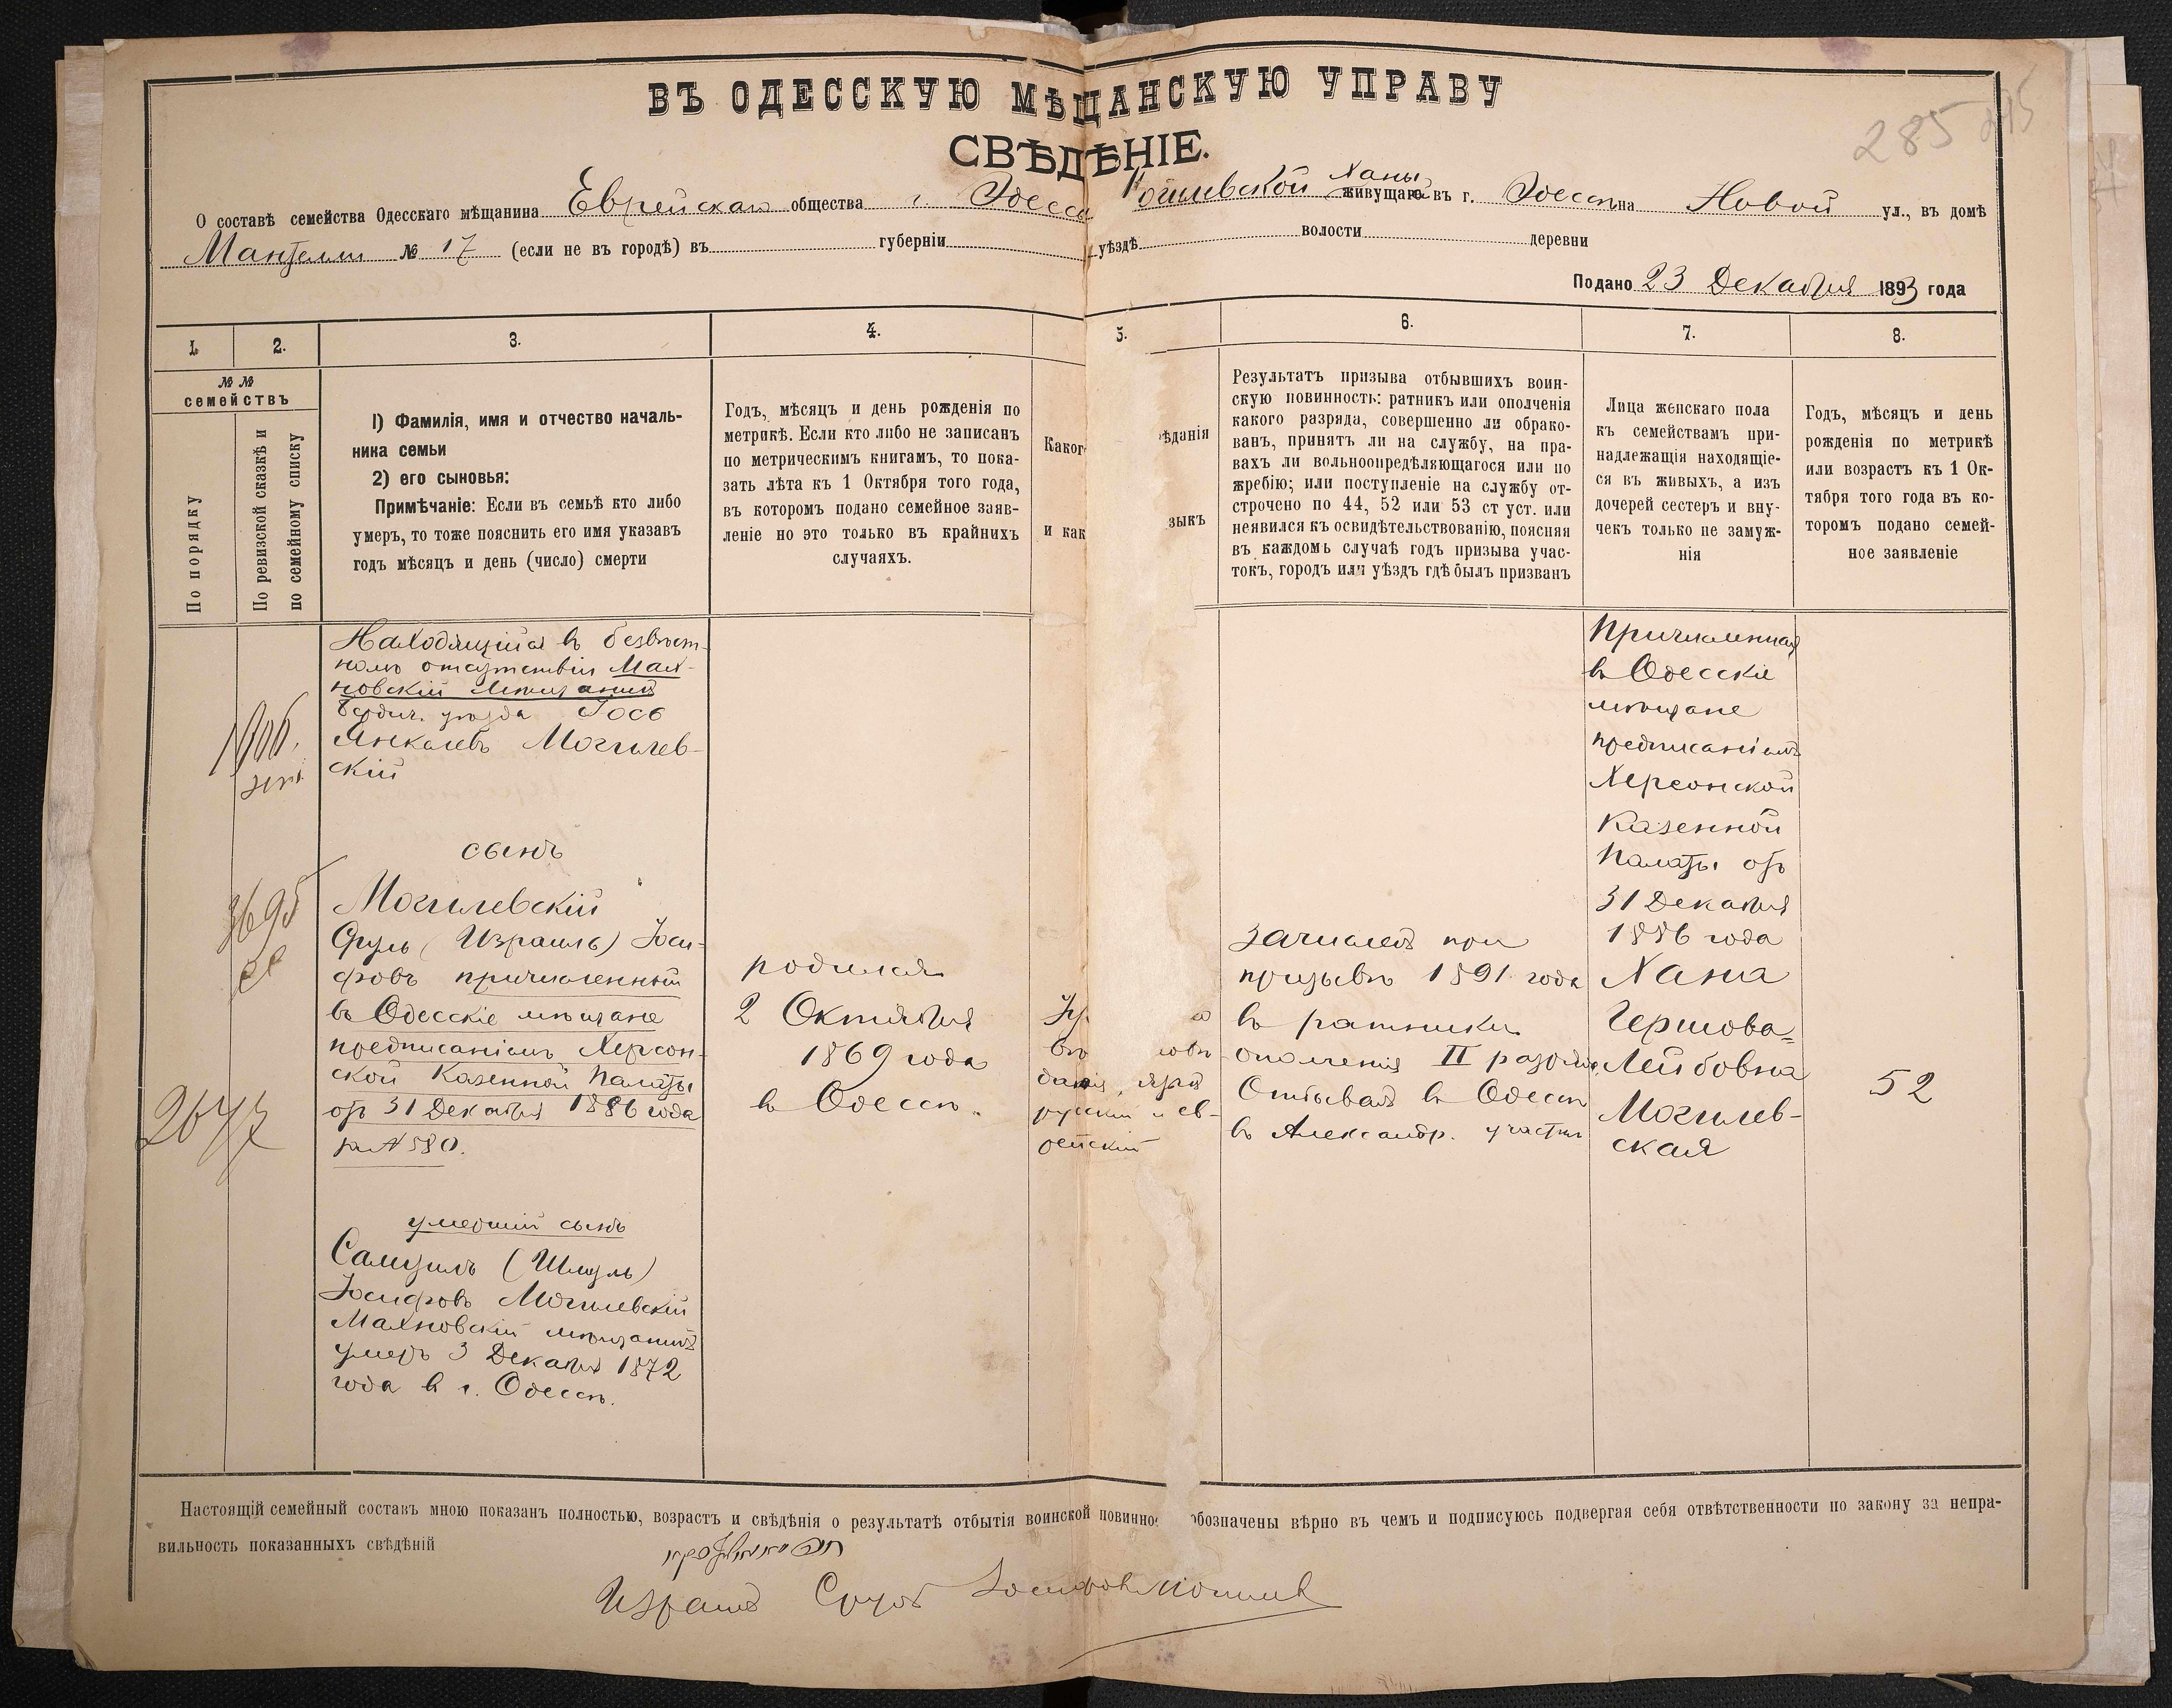 ВЪ ОДЕССКУЮ МѢЩАНСКУЮ УПРАВУ
СВѢДѢНІЕ.
285
О составѣ семейства Одесскаго мѣщанина Еврейскаго общества г. Одессы Могилевской Ханы живущаго въ г. Одессѣ на Новой ул., въ домѣ
№ 17 (если не въ городѣ) въ губерніи уѣздѣ волости деревни
Подано 23 Декабря 1893 года
1. 2. 3. 4. 5. 6. 7. 8.
№ №
семействъ
По порядку
По ревизской сказкѣ и
по семейному списку
1) Фамилія, имя и отчество началь-
ника семьи
2) его сыновья:
Примѣчаніе: Если въ семьѣ кто либо
умеръ, то тоже пояснить его имя указавъ
годъ мѣсяцъ и день (число) смерти
Годъ, мѣсяцъ и день рожденія по
метрикѣ. Если кто либо не записанъ
по метрическимъ книгамъ, то пока-
зать лѣта къ 1 Октября того года,
въ которомъ подано семейное заяв-
леніе но это только въ крайнихъ
случаяхъ.
Каког ѣданія
и как зыкъ
Результатъ призыва отбывшихъ воин-
скую повинность: ратникъ или ополченія
какого разряда, совершенно ли обрако-
ванъ, принятъ ли на службу, на пра-
вахъ ли вольноопредѣляющагося или по
жребію; или поступленіе на службу от-
строчено по 44, 52 или 53 ст уст. или
неявился къ освидѣтельствованію, поясняя
въ каждомъ случаѣ годъ призыва учас-
токъ, городъ или уѣздъ гдѣ былъ призванъ
Лица женскаго пола
къ семействамъ при-
надлежащія находящіе-
ся въ живыхъ, а изъ
дочерей сестеръ и вну-
чекъ только не замуж-
нія
Годъ, мѣсяцъ и день
рожденія по метрикѣ
или возрастъ къ 1 Ок-
тября того года въ ко-
торомъ подано семей-
ное заявленіе
Находящійся в безвѣст-
номъ отсутствіи Мах-
новскій мѣщанинъ
Бердич. уѣзда Іось
Янкелевъ Могилев-
скій
сынъ
3695
Могилевскій
Сруль (Израиль) Іоси-
фовъ причисленный
въ Одесскіе мѣщане
предписаніемъ Херсон-
ской Казенной Палаты
отъ 31 Декабря 1886 года
за № 580.
умершій сынъ
Самуилъ (Шмуль)
Іосифовъ Могилевскій
Махновскій мѣщанинъ
умеръ 3 Декабря 1872
года в г. Одессѣ.
родился
2 Октября
1869 года
в Одессѣ.
русскій и ев-
рейскій
зачисленъ при
призывѣ 1891 года
в ратники
ополченія II разряда.
Отбывалъ в Одессѣ
въ Александр. участкѣ
Причисленная
въ Одесскіе
мѣщане
предписаніемъ
Херсонской
Казенной
Палаты отъ
31 Декабря
1886 года
Хана
Гершова-
Лейбовна
Могилев-
ская
52
Настоящій семейный составъ мною показанъ полностью, возрастъ и свѣдѣнія о результатѣ отбытія воинской повинно обозначены вѣрно въ чемъ и подписуюсь подвергая себя отвѣтственности по закону за непра-
вильность показанныхъ свѣдѣній